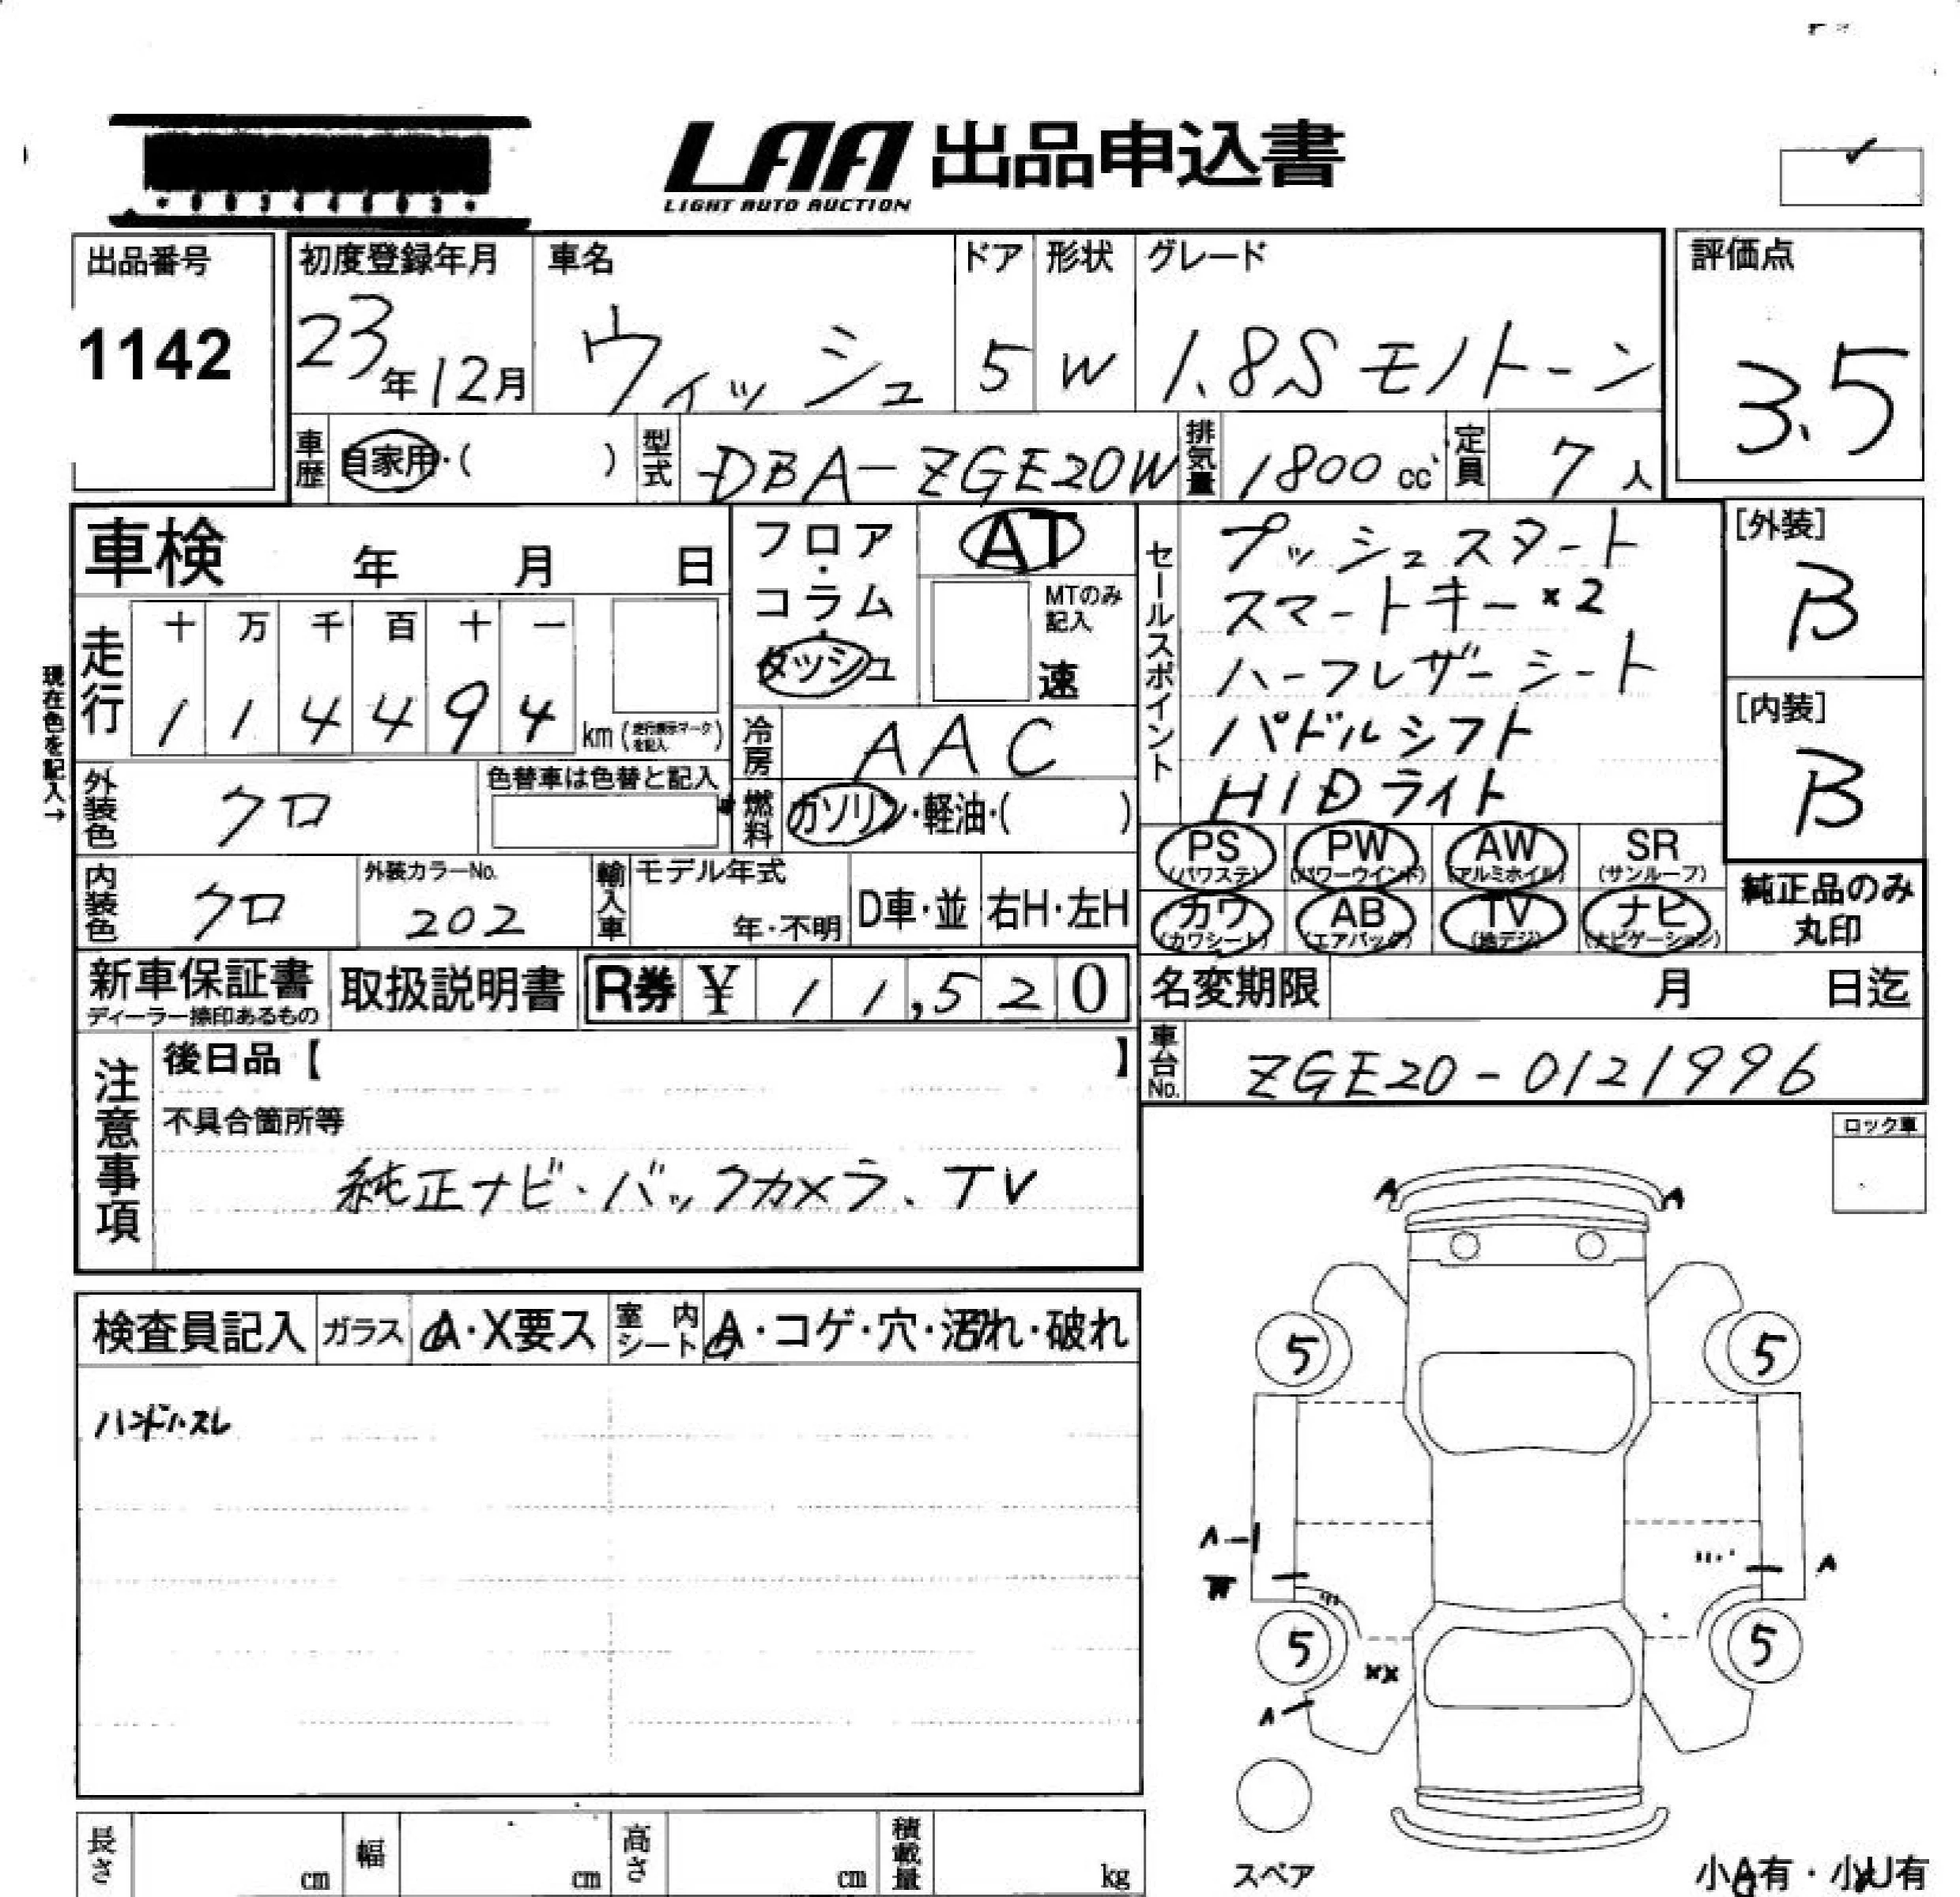 LAA 出品申込書
LIGHT AUTO AUCTION
出品番号
1142
初度登録年月
23年12月
車名
ウィッシュ
ドア
5
形状
W
グレード
1.8S モノトーン
評価点
3.5
車歴
自家用・( )
型式
DBA-ZGE20W
排気量
1800 cc
定員
7 人
車検 年 月 日
フロア・コラム・ダッシュ
AT
MTのみ記入
速
セールスポイント
プッシュスタート
スマートキー×2
ハーフレザーシート
パドルシフト
HIDライト
[外装]
B
[内装]
B
現在色を記入→
走行
十 万 千 百 十 一
1 1 4 4 9 4
km (走行表示マークを記入)
冷房
AAC
外装色
クロ
色替車は色替と記入
燃料
ガソリン・軽油・( )
内装色
クロ
外装カラーNo.
202
輸入車
モデル年式
年・不明
D車・並
右H・左H
PS (パワステ)
PW (パワーウインド)
AW (アルミホイル)
SR (サンルーフ)
カワ (カワシート)
AB (エアバック)
TV (地デジ)
ナビ (ナビゲーション)
純正品のみ
丸印
新車保証書
ディーラー捺印あるもの
取扱説明書
R券 ¥ 11,520
名変期限 月 日迄
車台No.
ZGE20-0121996
注意事項
後日品【 】
不具合箇所等
純正ナビ・バックカメラ、TV
ロック車
検査員記入
ガラス
A・X要ス
室内シート
A・コゲ・穴・汚れ・破れ
ハンドルスレ
A A
5 5
A
A
W
5 5
XX
A
スペア
小A有・小U有
長さ cm
幅 cm
高さ cm
積載量 kg